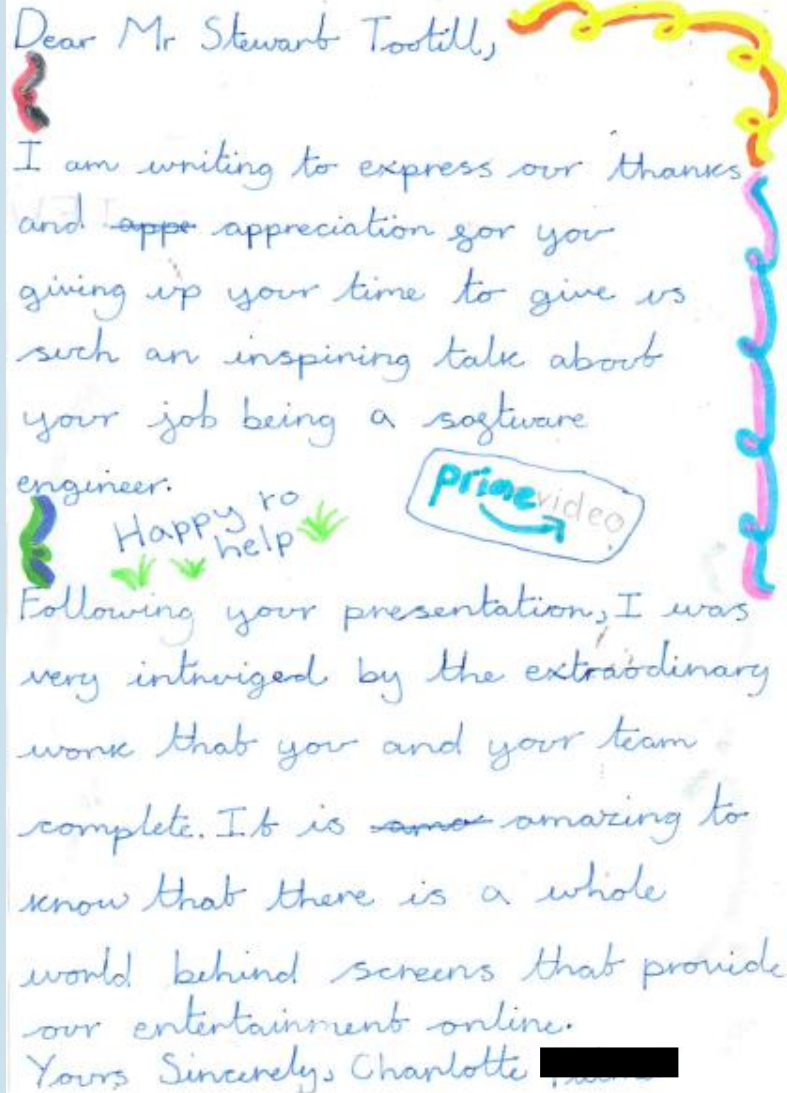 Dear Mr Stewart Tootill,
I am writing to express our thanks
and appe appreciation for you
giving up your time to give us
such an inspiring talk about
your job being a software
engineer.
Happy to
help
prime video
Following your presentation, I was
very intruiged by the extraodinary
work that you and your team
complete. It is ama amazing to
know that there is a whole
world behind screens that provide
our entertainment online.
Yours Sincerely, Charlotte